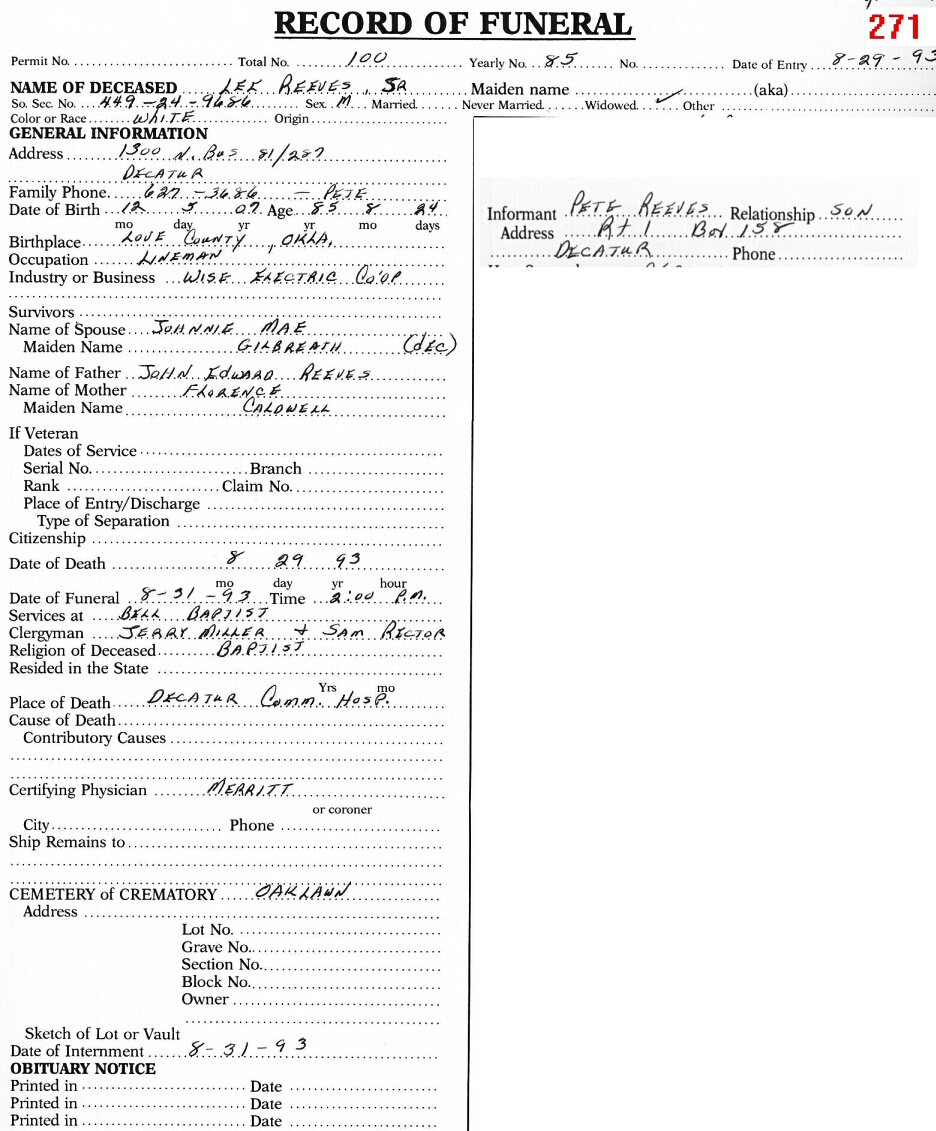 RECORD OF FUNERAL
271
Permit No. Total No. 100 Yearly No. 85 No. Date of Entry 8-29-93
NAME OF DECEASED LEE REEVES, SR Maiden name (aka)
So. Sec. No. 449-24-9686 Sex M Married Never Married Widowed ✓ Other
Color or Race WHITE Origin
GENERAL INFORMATION
Address 1300 N. Bus 81/287
DECATUR
Family Phone 627-3686 - PETE
Date of Birth 12 5 07 Age 85 8 24
mo day yr yr mo days
Birthplace LOVE COUNTY, OKLA.
Occupation LINEMAN
Industry or Business WISE ELECTRIC CO'OP
Survivors
Name of Spouse JOHNNIE MAE
Maiden Name GILBREATH (dEC)
Name of Father JOHN EdWARD REEVES
Name of Mother FLORENCE
Maiden Name CALDWELL
If Veteran
Dates of Service
Serial No. Branch
Rank Claim No.
Place of Entry/Discharge
Type of Separation
Citizenship
Date of Death 8 29 93
mo day yr hour
Date of Funeral 8-31-93 Time 2:00 P.M.
Services at BELL BAPTIST
Clergyman JERRY MILLER + SAM RECTOR
Religion of Deceased BAPTIST
Resided in the State
Yrs mo
Place of Death DECATUR Comm. HOSP.
Cause of Death
Contributory Causes
Certifying Physician MERRITT
or coroner
City Phone
Ship Remains to
CEMETERY of CREMATORY OAKLAWN
Address
Lot No.
Grave No.
Section No.
Block No.
Owner
Sketch of Lot or Vault
Date of Internment 8-31-93
OBITUARY NOTICE
Printed in Date
Printed in Date
Printed in Date
Informant PETE REEVES Relationship SON
Address Rt 1 Box 158
DECATUR Phone